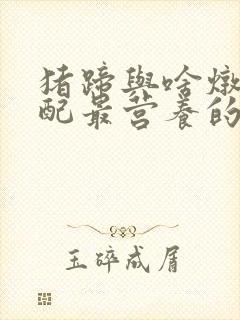 猪蹄與啥燉
配最营养的
玉碎成屑